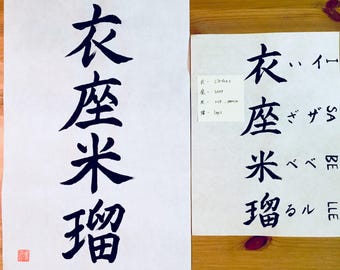 衣座米瑠
衣 い イ I
座 ざ ザ SA
米 べ ベ BE
瑠 る ル LLE
衣 - clothes
座 - seat
米 -
瑠 - lapis